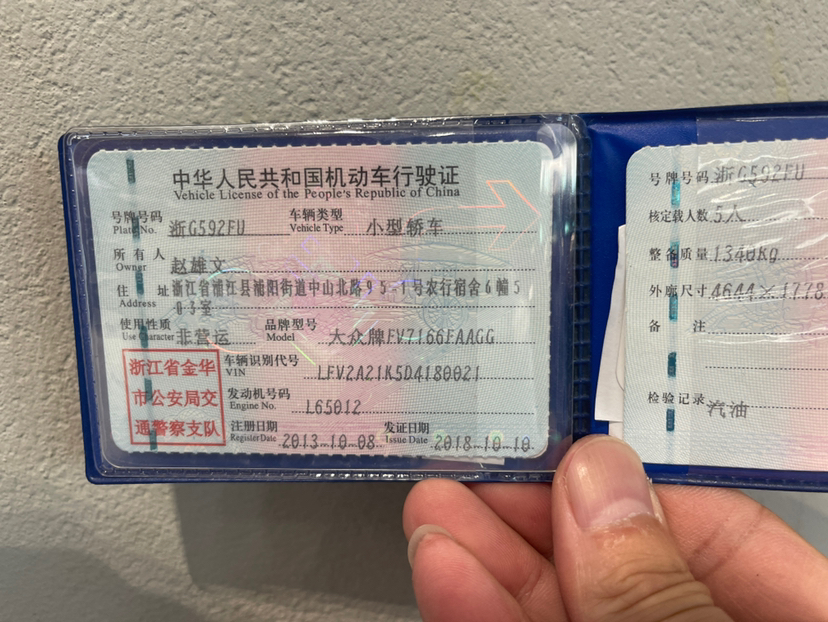 中华人民共和国机动车行驶证
Vehicle License of the People's Republic of China
号牌号码 浙G592FU 车辆类型 小型轿车
Plate No. Vehicle Type
所有人 赵雄文
Owner
住址 浙江省浦江县浦阳街道中山北路95-1号农行宿舍6幢5
Address 03室
使用性质 非营运 品牌型号 大众牌FV7166FAAGG
Use Character Model
浙江省金华
市公安局交
通警察支队
车辆识别代号 LFV2A21K5D4180021
VIN
发动机号码 L65012
Engine No.
注册日期 2013-10-08 发证日期 2018-10-10
Register Date Issue Date
号牌号码 浙G592FU
核定载人数 5人
整备质量 1340kg
外廓尺寸 4644×1778
备注
检验记录 汽油